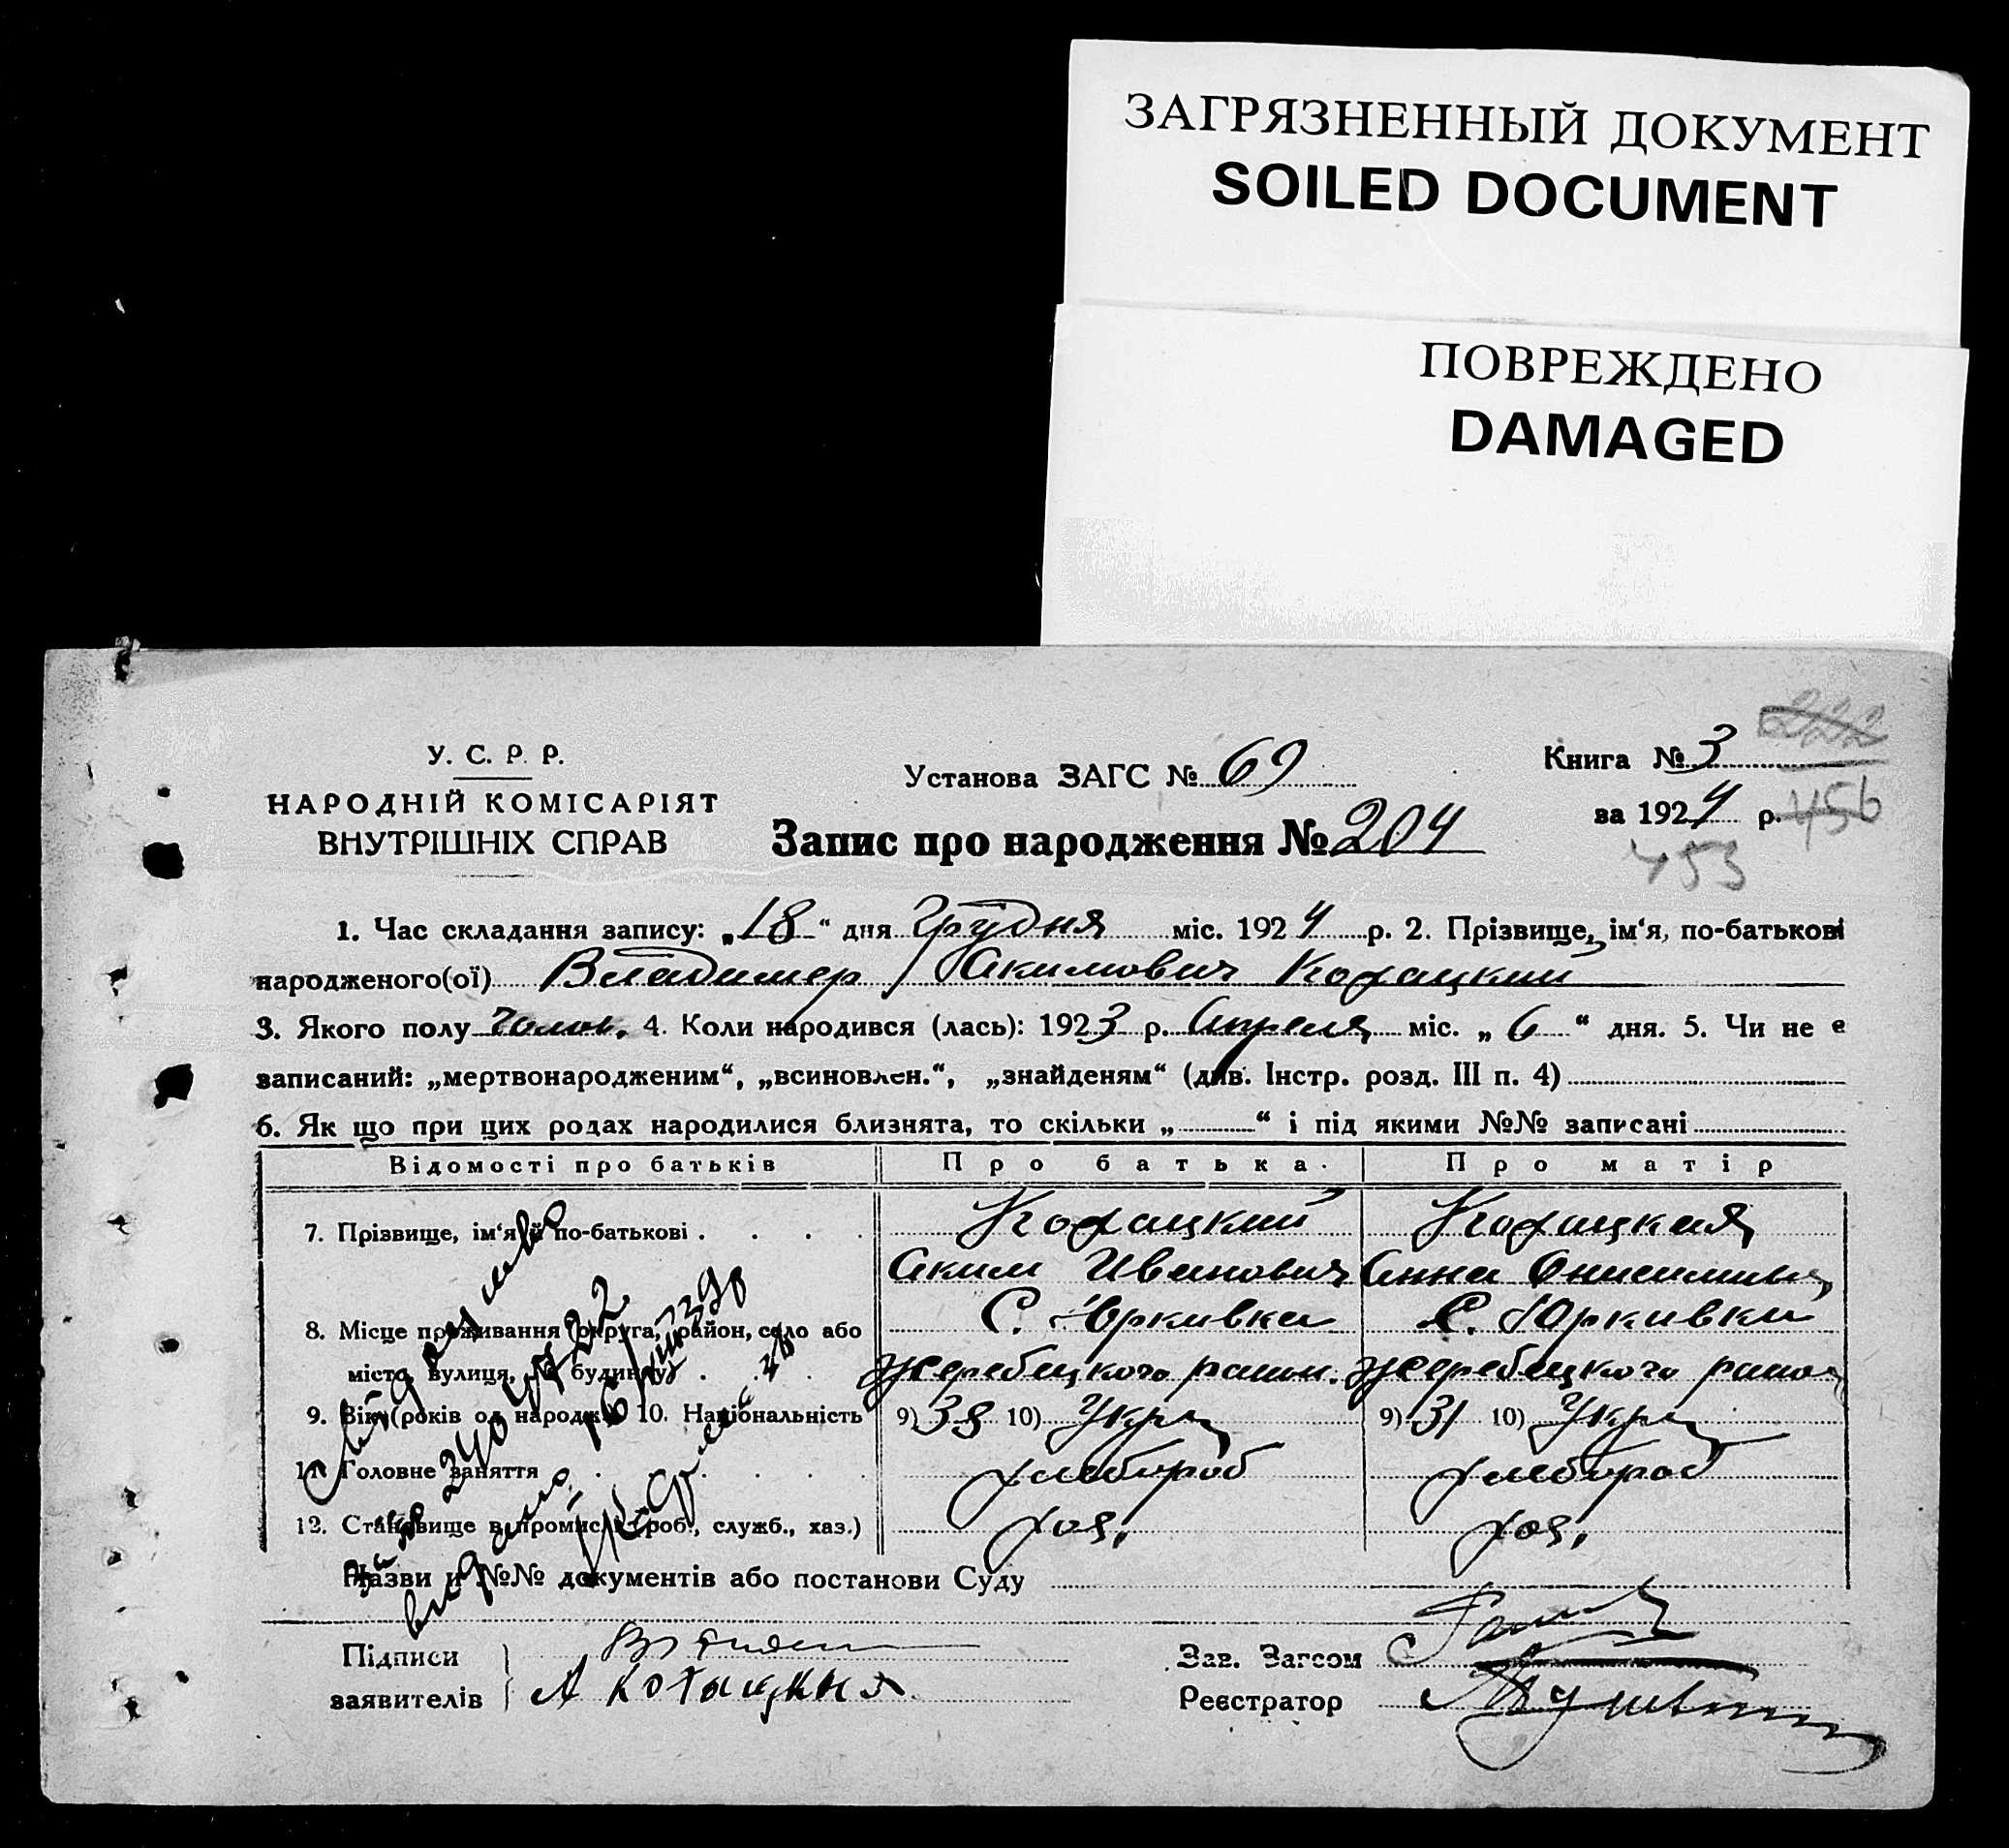 ЗАГРЯЗНЕННЫЙ ДОКУМЕНТ
SOILED DOCUMENT
ПОВРЕЖДЕНО
DAMAGED
222
У. С. Р. Р.
НАРОДНІЙ КОМІСАРІЯТ
ВНУТРІШНІХ СПРАВ
Установа ЗАГС № 69
Книга № 3
за 1924 р. 456
Запис про народження № 204
453
1. Час складання запису: „18“ дня Грудня міс. 1924 р. 2. Прізвище, ім‘я, по-батькові
народженого(ої) Владимер Акимович Кохацкий
3. Якого полу чолов. 4. Коли народився (лась): 1923 р. Апреля міс. „6“ дня. 5. Чи не є
записаний: „мертвонародженим“, „всиновлен.“, „знайденям“ (див. Інстр. розд. III п. 4)
6. Як що при цих родах народилися близнята, то скільки „ “ і під якими №№ записані
Відомості про батьків Про батька. Про матір
7. Прізвище, ім‘я й по-батькові . . . . Кохацкий Кохацкая
Аким Иванович Анна
8. Місце проживання (округа, район, село або С. Юркивка С. Юркивка
місто, вулиця, № будинку) . . . Жеребецкого район. Жеребецкого район
9. Вік (років од народж.) 10. Національність 9) 38 10) Укр 9) 31 10) Укр
11. Головне заняття . . . . . . Хлебороб Хлебороб
12. Становище в промислі (роб., служб., хаз.) хоз. хоз.
Назви и №№ документів або постанови Суду
Підписи
заявителів А Кохацкия
Зав. Загсом
Реєстратор